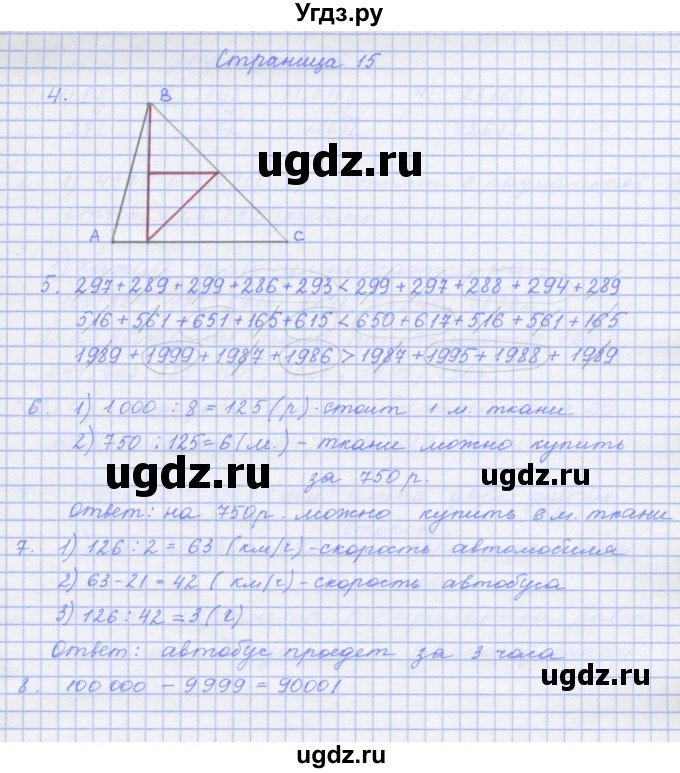 Угдз.ру
Страница 15
4.
B
ugdz.ru
A
C
5. 297+289+299+286+293<299+297+288+294+289
516+561+651+165+615<650+617+516+561+165
1989+1999+1987+1986>1987+1995+1988+1989
6. 1) 1000 : 8 = 125 (р)-стоит 1 м. ткани
2) 750 : 125=6 (м.) - ткани можно купить
ugdz.ru
ugdz.ru
за 750р.
Ответ: на 750р. можно купить 6 м. ткани
7. 1) 126 : 2 = 63 (км/ч)-скорость автомобиля
2) 63-21 = 42 (км/ч)-скорость автобуса
3) 126 : 42 = 3 (ч)
Ответ: автобус проедет за 3 часа
8. 100 000 - 9999 = 90001
ugdz.ru
ugdz.ru